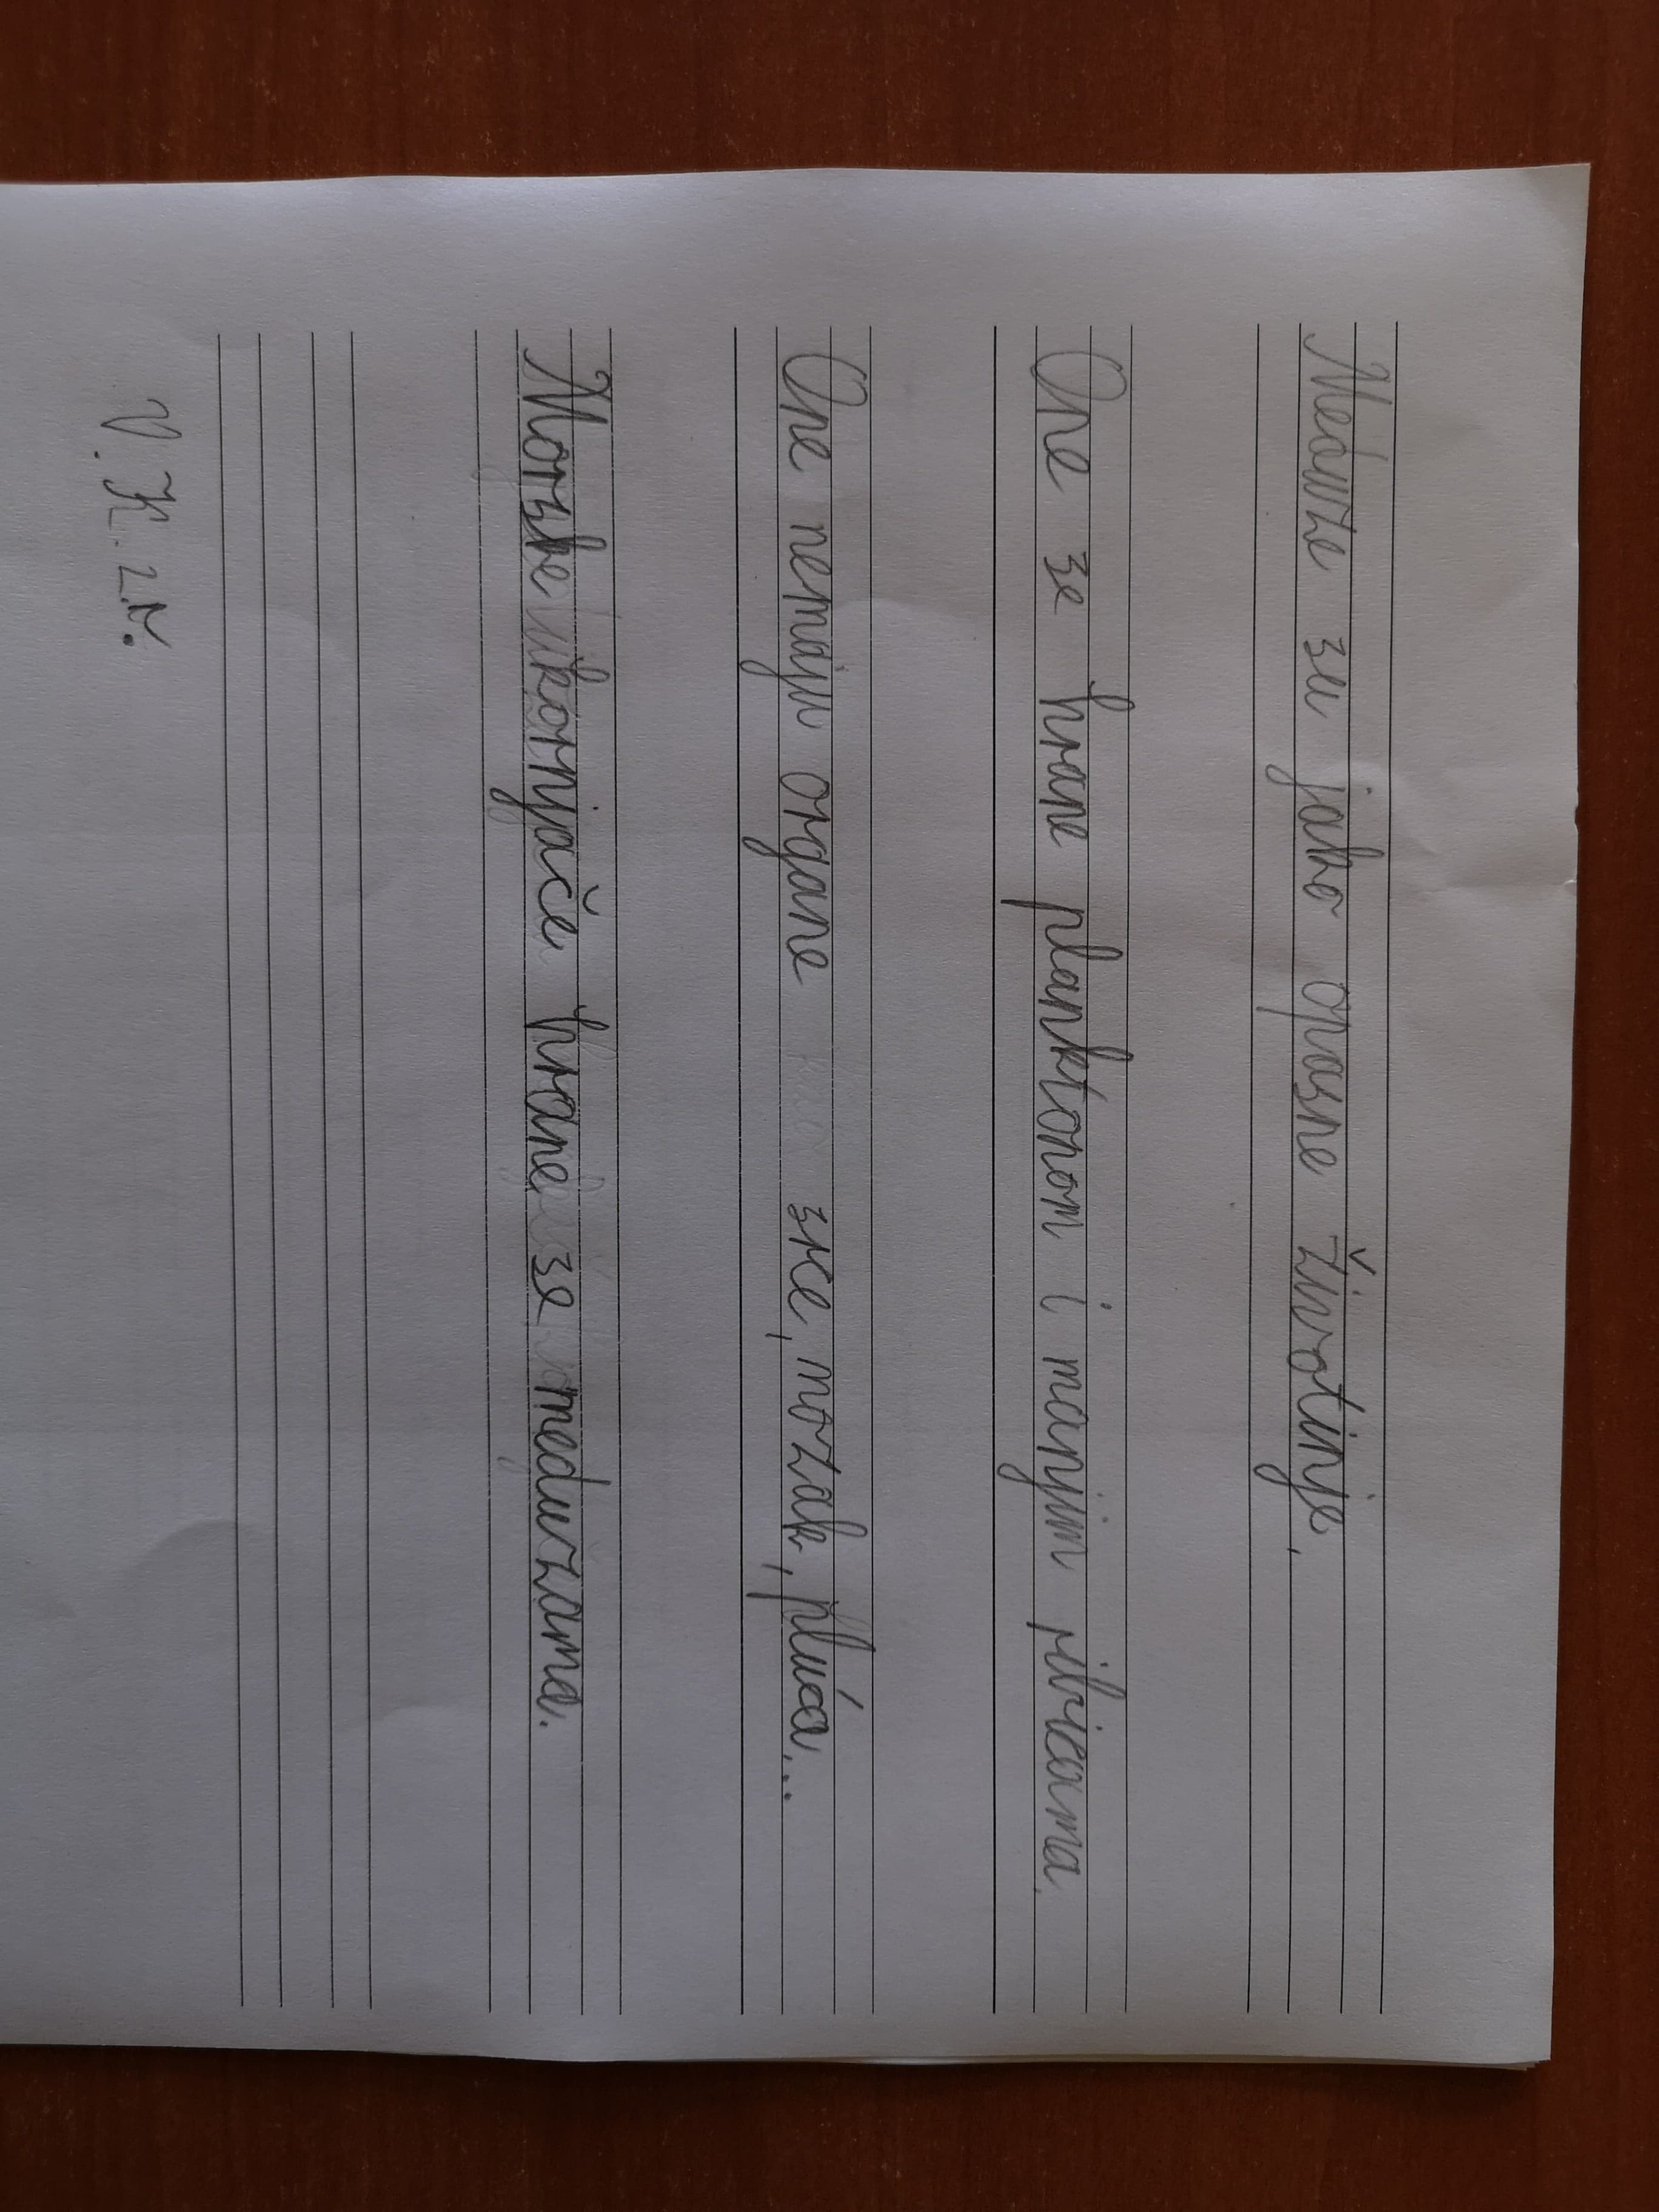 Meduze su jako opasne životinje.
One se hrane planktonom i manjim ribicama.
One nemaju organe srce, mozak, pluća...
Morske kornjače hrane se meduzama.
V. K. 2.r.